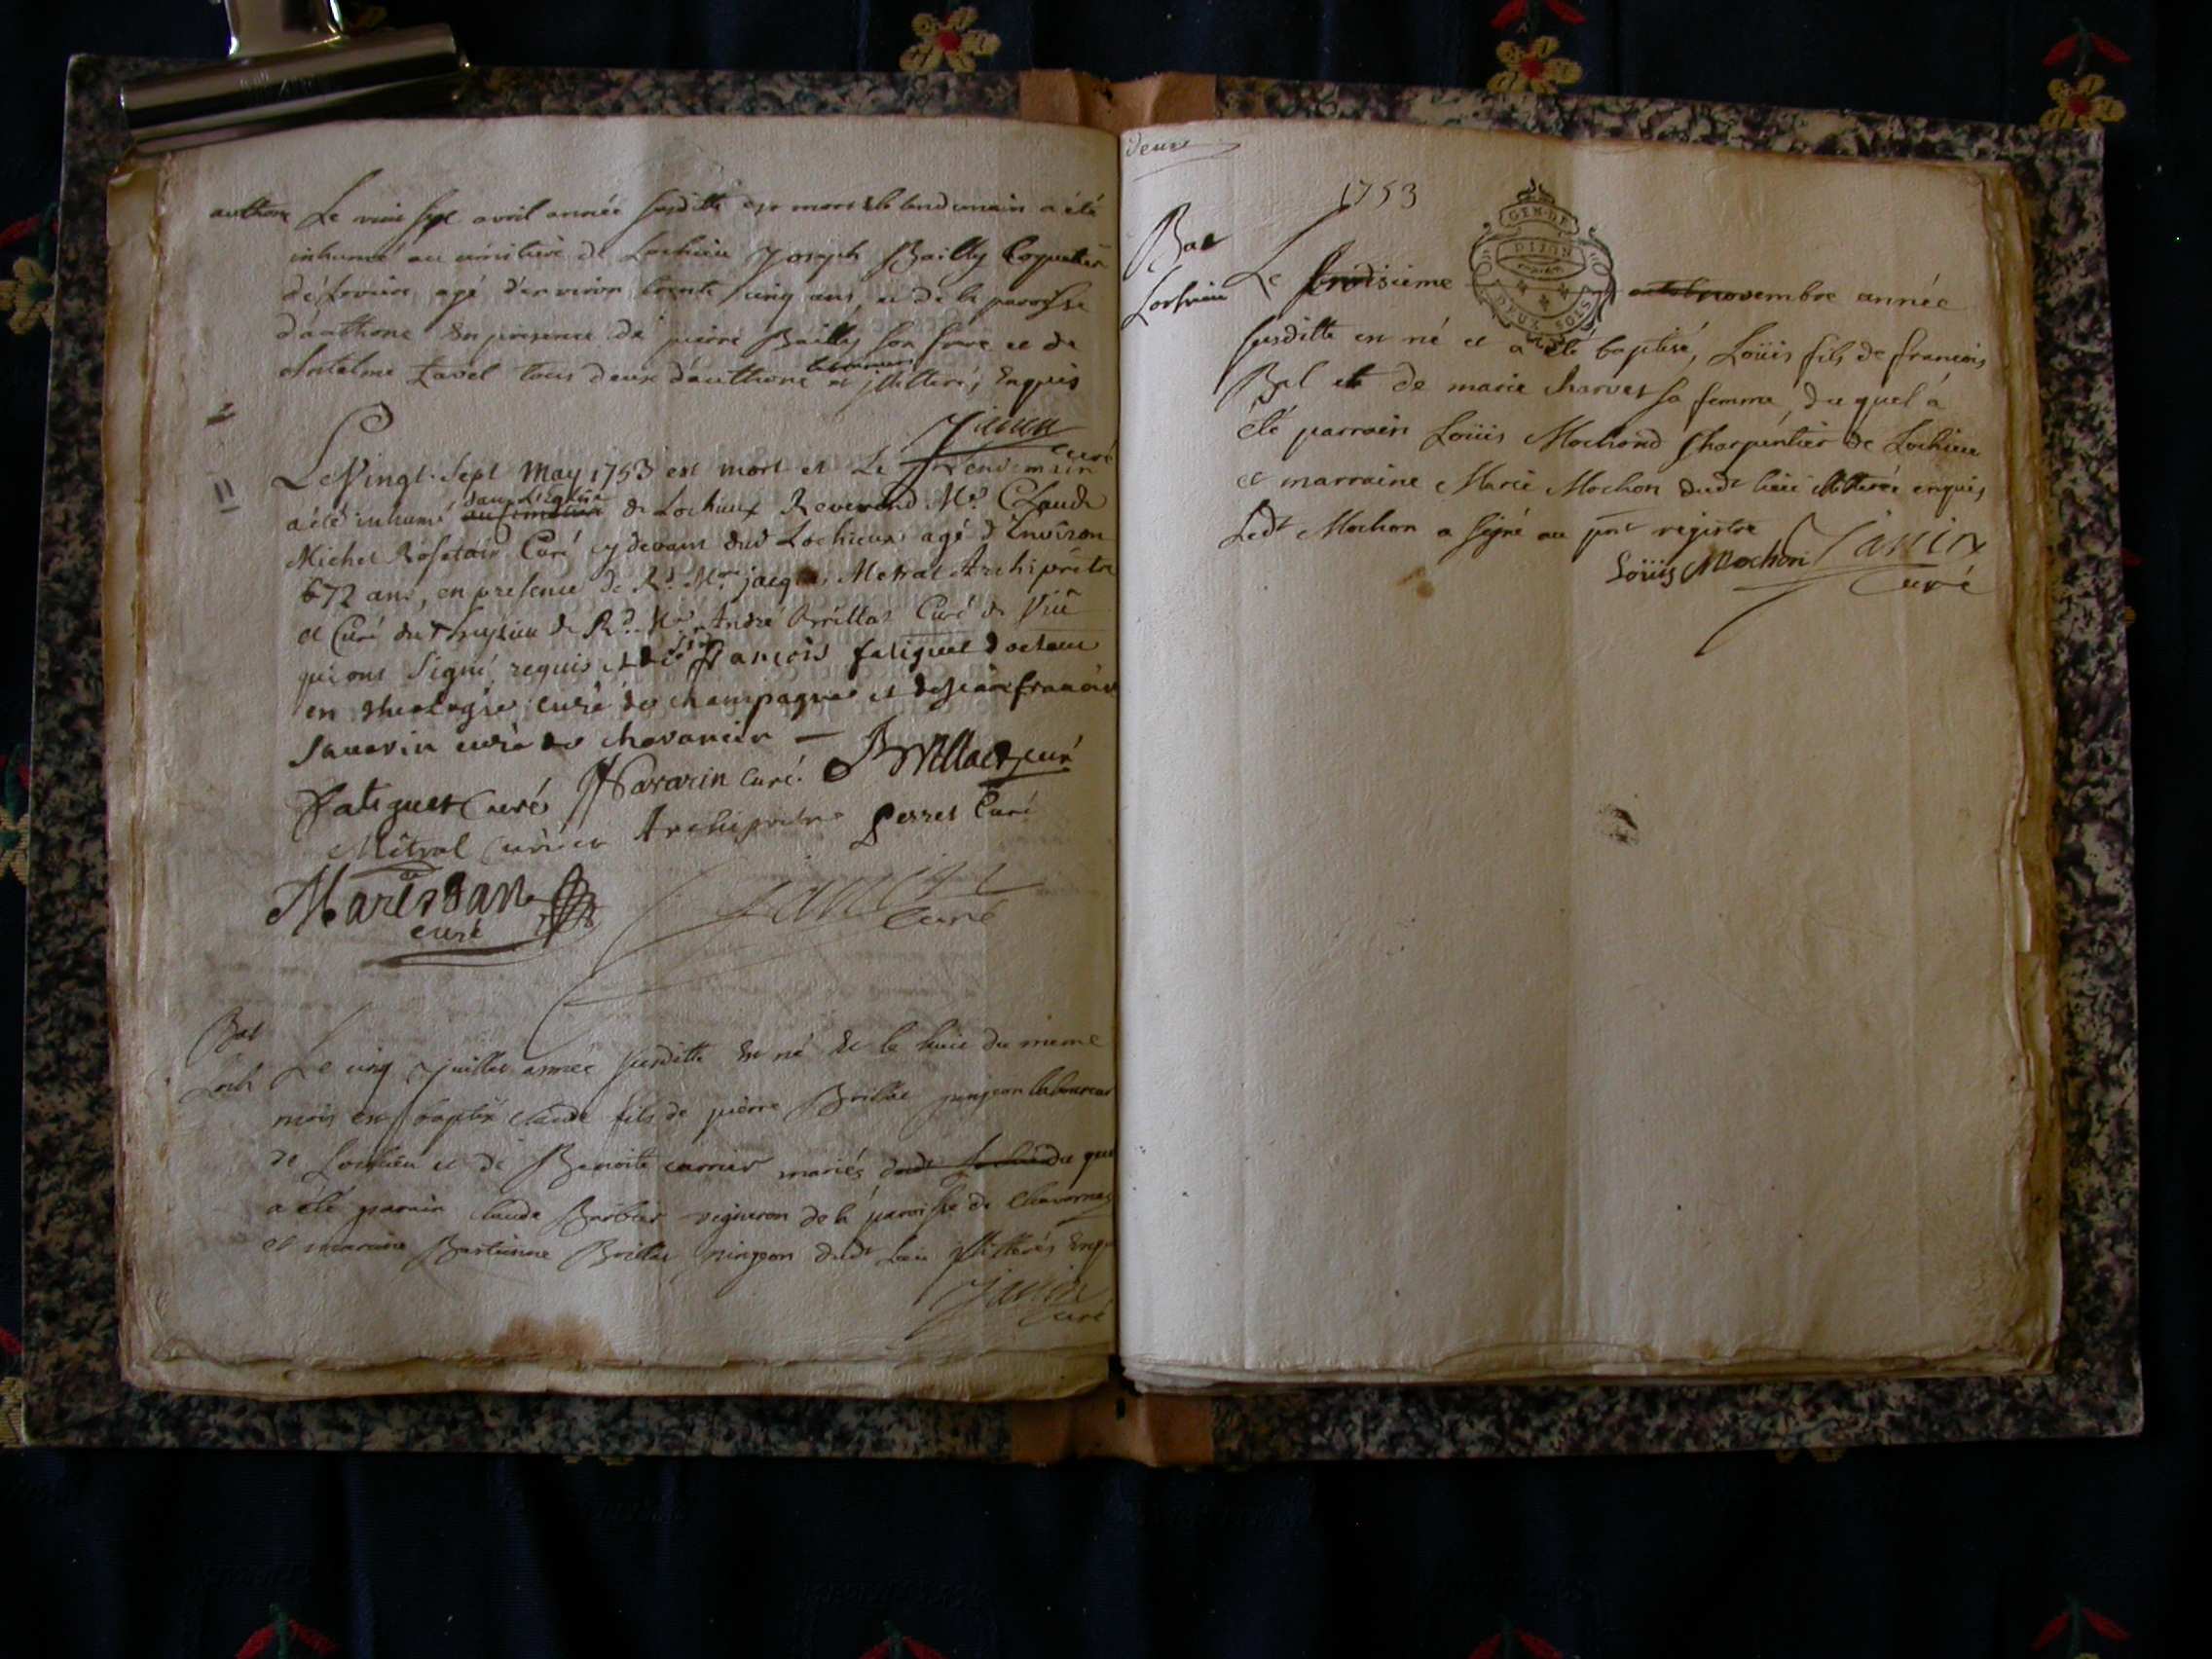 authone Le vint sept avril année susditte est mort & le lendemain a été
inhumé au cimitiere de Lochieu Joseph Bailly Coquetier
agé d'environ trente cinq ans, et de la paroisse
d'authone En presence de pierre Bailly son frere et de
Antelme tavel tous deux d'authone et illitteré, Enquis
Janin
curé
Le Vingt-Sept May 1753 est mort et Le Lendemain
a été inhumé dans l'Eglise au Cimetiere de Lochieux Reverend Mre Claude
Michel Rosetain Curé cy devant dud Lochieux agé d'Environ
672 ans, en presence de Rd. Mre jacques Metral Archiprêtre
et Curé de Rd. Mre André Brillat Curé de Viu
qui ont Signé, requis et de françois fatiguet docteur
en theologie curé de champagne et de françois
Savarin curé de chavanin
Fatiguet Curé Savarin Curé. Brillat curé
Mêtral Curé et Archiprêtre Perret Curé
curé
Janin
Curé
Bat
Loch Le cinq Juillet année susditte Est né Et le huit du mème
mois est baptisé claude fils de pierre Brillat pingeon laboureur
de Lochieu et de Benoite carrier mariés dudt Lochieu du quel
a été parrain claude Barbier vigneron de la paroisse de Chavornay
et marraine Bastienne Brillat pingeon dudt Lieu illitterés Enq
Janin
curé
deux
1753
GEN. DE
DIJON
DEUX SOLS
Bat
Lochieu Le novembre année
susditte est né et a été baptisé, Loüis fils de francois
Bal et de marie charvet sa femme, du quel a
été parrain Loüis Mochond Charpentier de Lochieu
et marraine Marie Mochon dudt lieu illitteréé enquis,
Ledt Mochon a signé au pnt registre
Loüis Mochon Janin
Curé